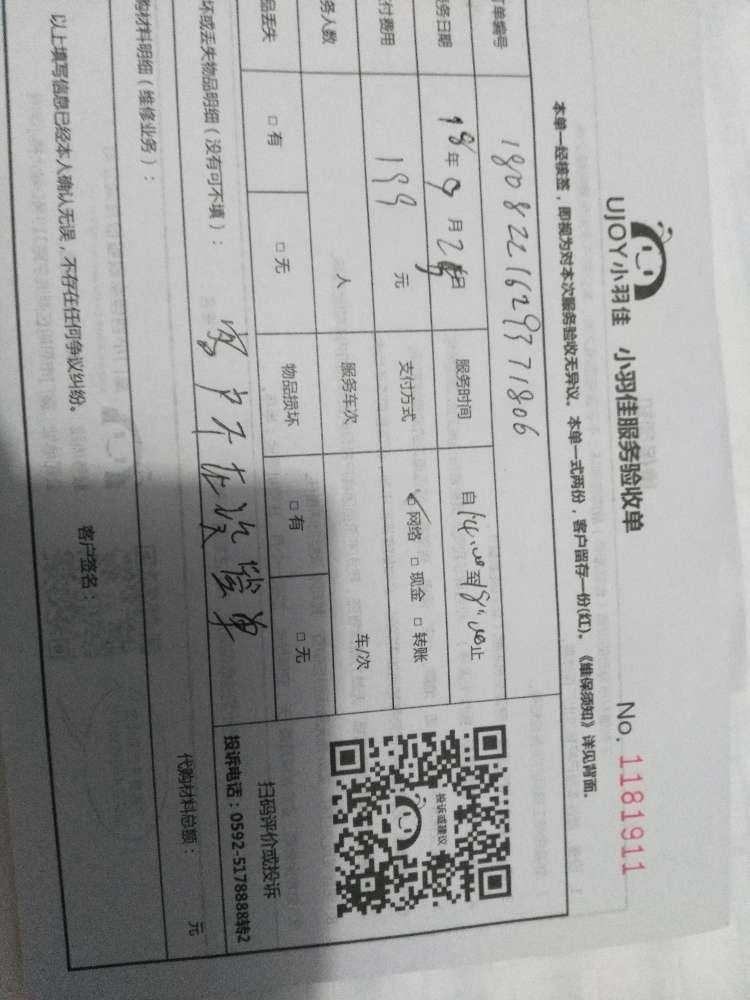 UJOY小羽佳 小羽佳服务验收单 No. 1181911
本单一经核签，即视为对本次服务验收无异议。本单一式两份，客户留存一份(红)。《维保须知》详见背面。
订单编号 180822162937 1806
务日期 18年9月2日 服务时间 自14:00至18:00止
付费用 199元 支付方式 ☑网络 □现金 □转账
务人数 人 服务车次 车/次
品丢失 □有 □无 物品损坏 □有 □无
坏或丢失物品明细（没有可不填）：
客户不在没签单
投诉或建议
扫码评价或投诉
投诉电话：0592-5178888转2
购材料明细（维修业务）：
代购材料总额： 元
以上填写信息已经本人确认无误，不存在任何争议纠纷。 客户签名：